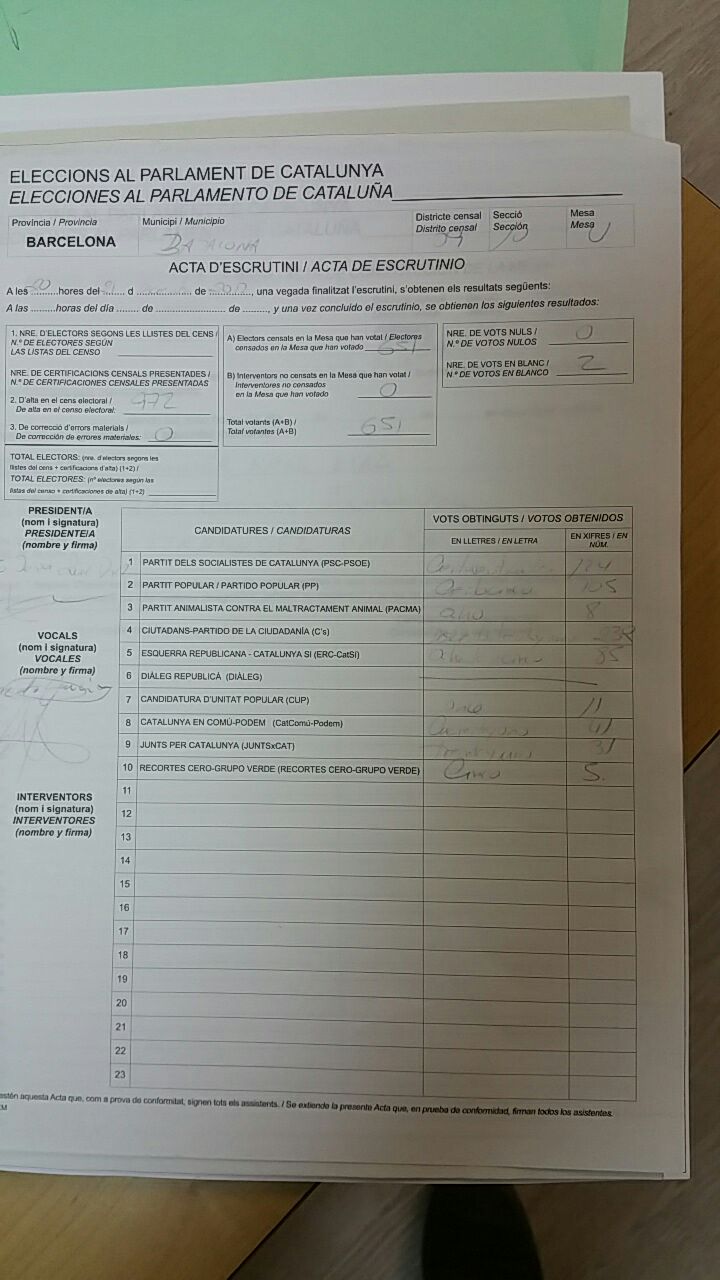 ELECCIONS AL PARLAMENT DE CATALUNYA
ELECCIONES AL PARLAMENTO DE CATALUÑA
Província / Provincia
BARCELONA
Municipi / Municipio
BADALONA
Districte censal
Distrito censal
09
Secció
Sección
Mesa
Mesa
U
ACTA D'ESCRUTINI / ACTA DE ESCRUTINIO
A les 20 hores del 21 d ........ de ........, una vegada finalitzat l'escrutini, s'obtenen els resultats següents:
A las ........horas del día ....... de ..................... de ........, y una vez concluido el escrutinio, se obtienen los siguientes resultados:
1. NRE. D'ELECTORS SEGONS LES LLISTES DEL CENS /
N.º DE ELECTORES SEGÚN
LAS LISTAS DEL CENSO
NRE. DE CERTIFICACIONS CENSALS PRESENTADES /
N.º DE CERTIFICACIONES CENSALES PRESENTADAS
2. D'alta en el cens electoral /
De alta en el censo electoral: 972
3. De correcció d'errors materials /
De corrección de errores materiales: 0
TOTAL ELECTORS: (nre. d'electors segons les
llistes del cens + certificacions d'alta) (1+2) /
TOTAL ELECTORES: (nº electores según las
listas del censo + certificaciones de alta) (1+2)
A) Electors censats en la Mesa que han votat / Electores
censados en la Mesa que han votado 651
B) Interventors no censats en la Mesa que han votat /
Interventores no censados
en la Mesa que han votado 0
Total votants (A+B) /
Total votantes (A+B) 651
NRE. DE VOTS NULS /
N.º DE VOTOS NULOS 0
NRE. DE VOTS EN BLANC /
N.º DE VOTOS EN BLANCO 2
PRESIDENT/A
(nom i signatura)
PRESIDENTE/A
(nombre y firma)
VOCALS
(nom i signatura)
VOCALES
(nombre y firma)
INTERVENTORS
(nom i signatura)
INTERVENTORES
(nombre y firma)
CANDIDATURES / CANDIDATURAS
VOTS OBTINGUTS / VOTOS OBTENIDOS
EN LLETRES / EN LETRA
EN XIFRES / EN NÚM.
1 PARTIT DELS SOCIALISTES DE CATALUNYA (PSC-PSOE) 124
2 PARTIT POPULAR / PARTIDO POPULAR (PP) 105
3 PARTIT ANIMALISTA CONTRA EL MALTRACTAMENT ANIMAL (PACMA) ocho 8
4 CIUTADANS-PARTIDO DE LA CIUDADANÍA (C's)
5 ESQUERRA REPUBLICANA - CATALUNYA SÍ (ERC-CatSí) 85
6 DIÀLEG REPUBLICÀ (DIÀLEG)
7 CANDIDATURA D'UNITAT POPULAR (CUP) once 11
8 CATALUNYA EN COMÚ-PODEM (CatComú-Podem) 41
9 JUNTS PER CATALUNYA (JUNTSxCAT) 31
10 RECORTES CERO-GRUPO VERDE (RECORTES CERO-GRUPO VERDE) Cinco 5
11
12
13
14
15
16
17
18
19
20
21
22
23
estén aquesta Acta que, com a prova de conformitat, signen tots els assistents. / Se extiende la presente Acta que, en prueba de conformidad, firman todos los asistentes.